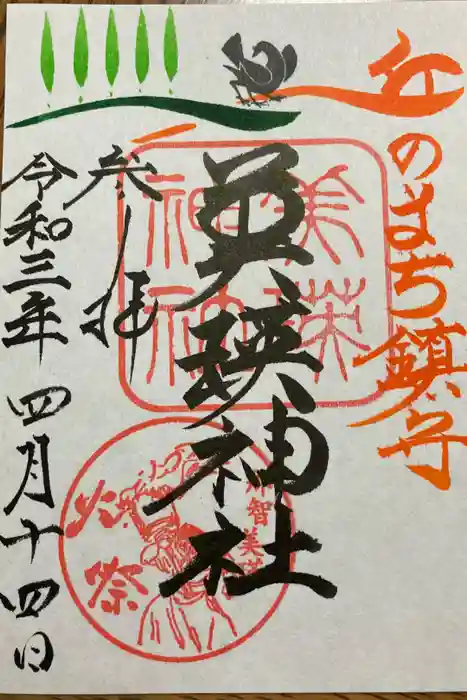 丘のまち鎮守
美瑛神社
参拝
令和三年 四月十四日
美瑛
神社
那智美瑛
火祭